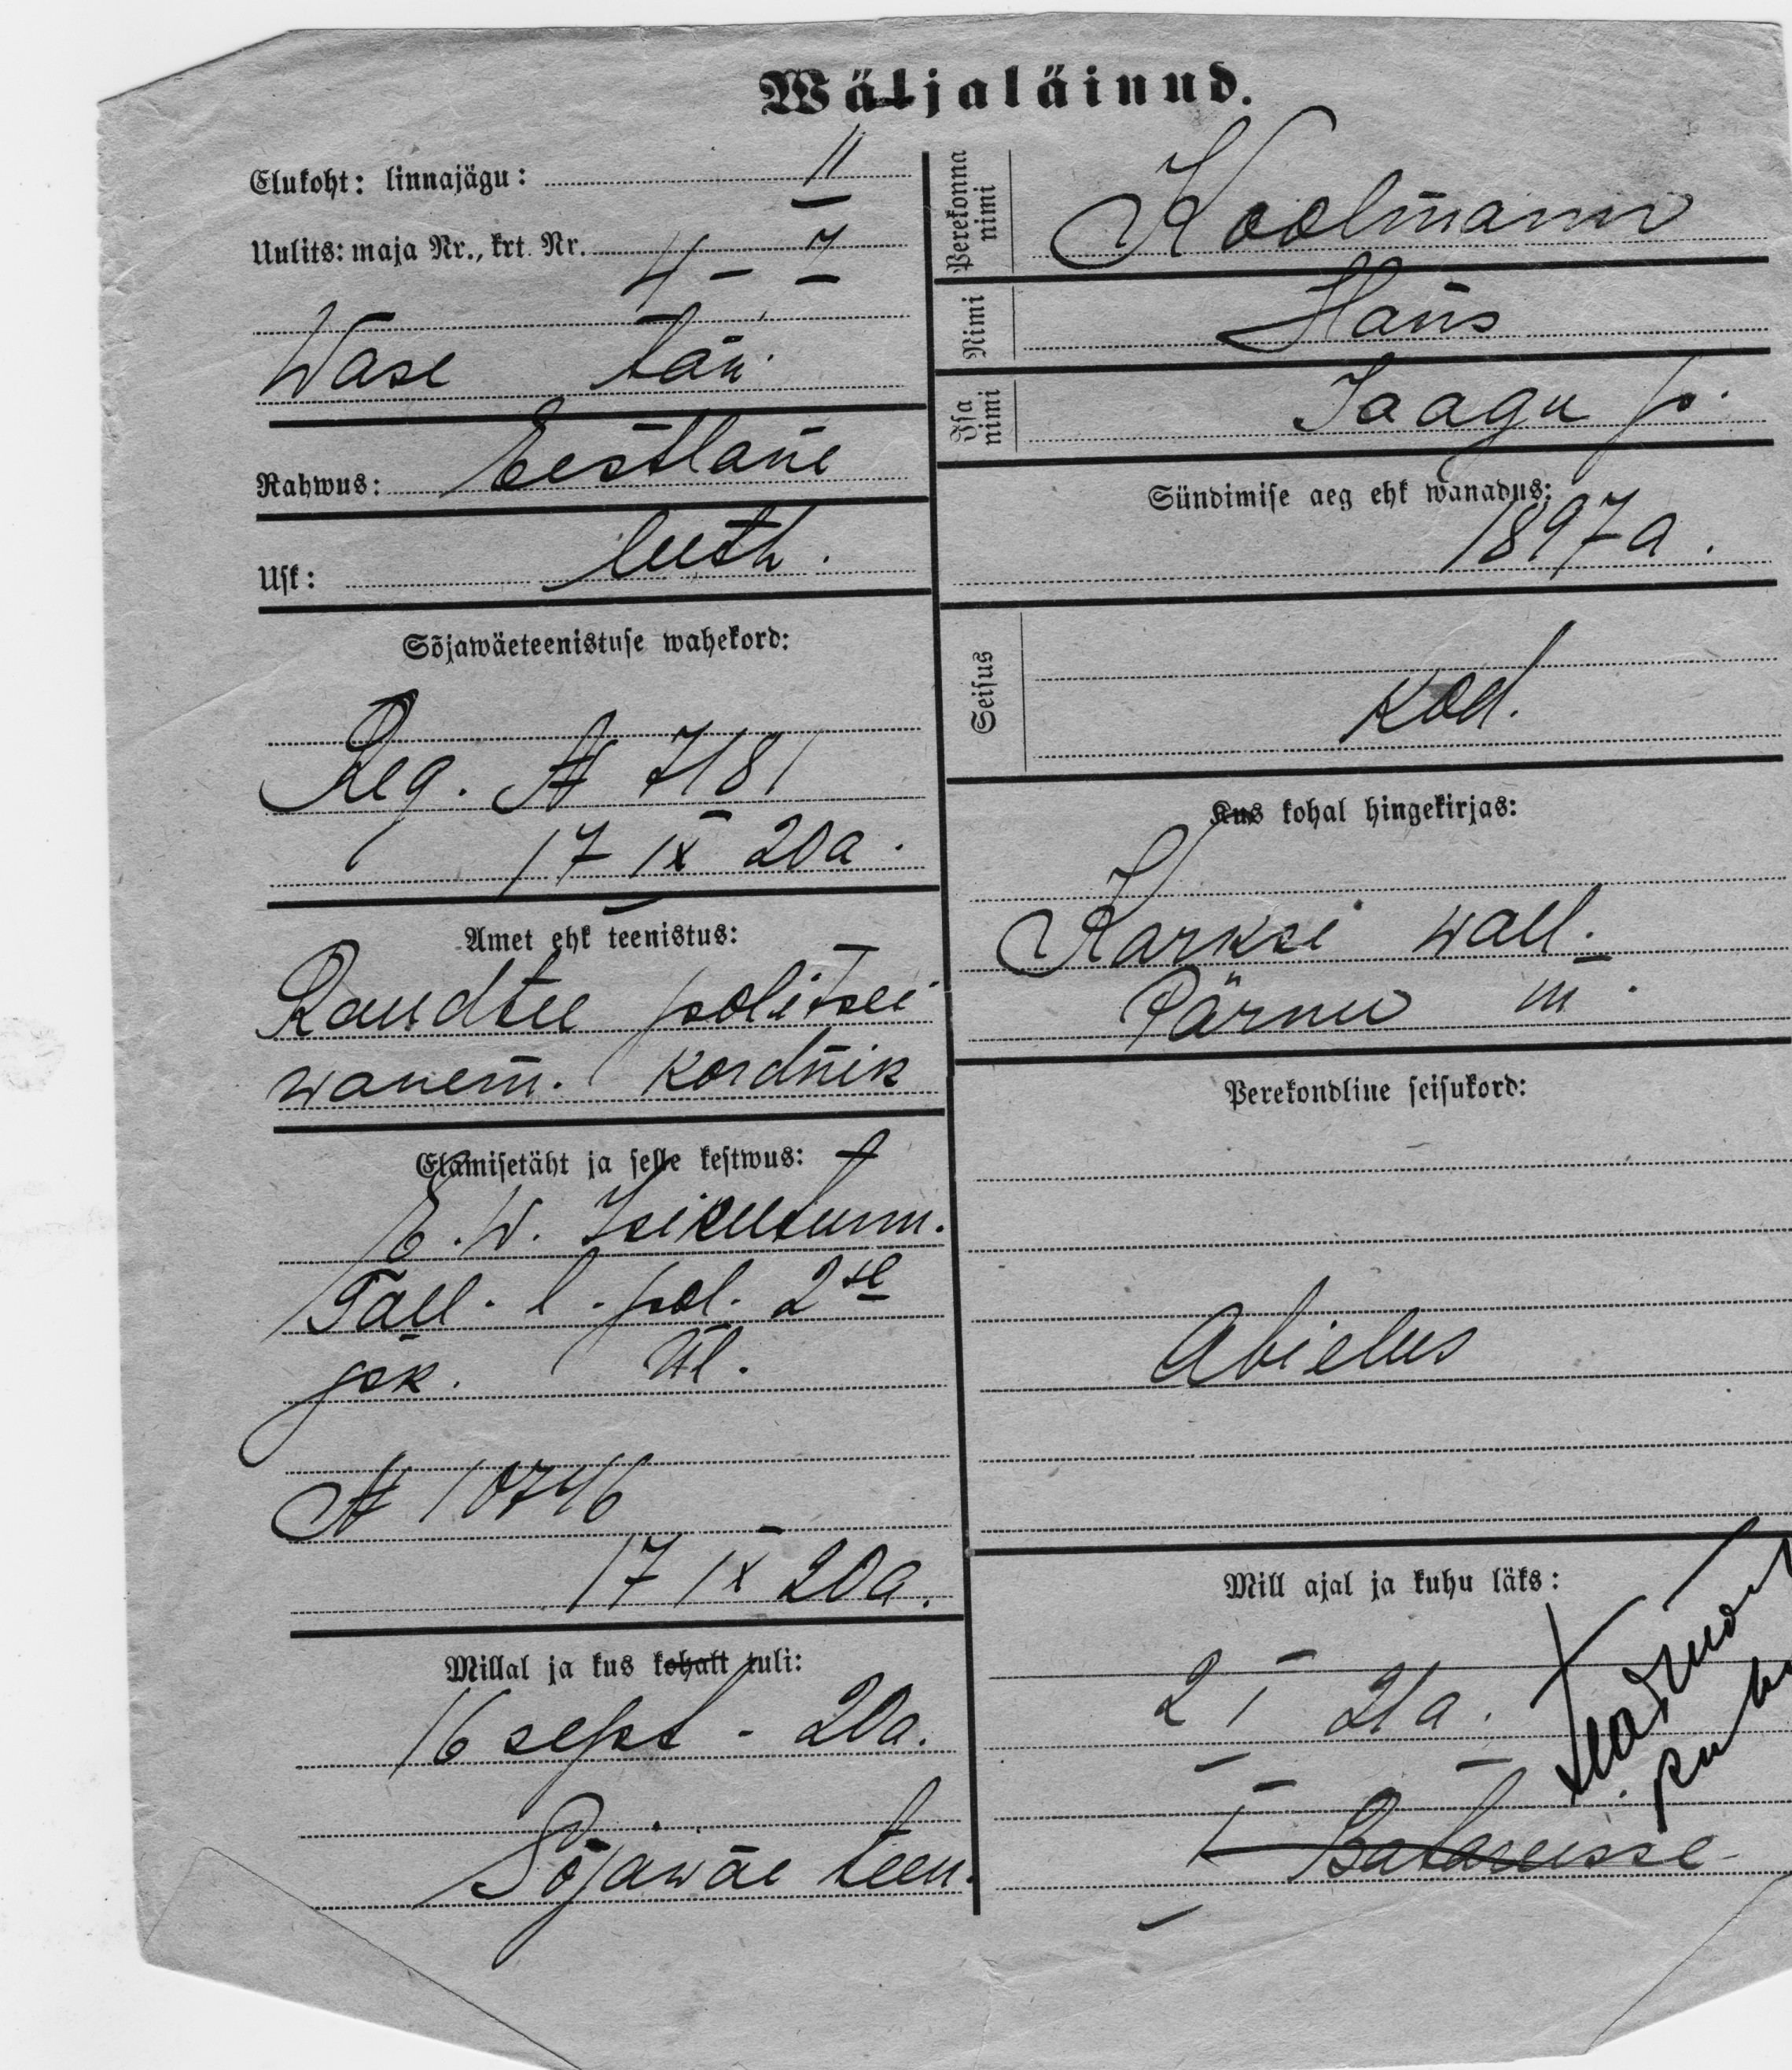 Wäljaläinud.
Elukoht: linnajägu: II
Uulits: maja Nr., krt. Nr.
4 – 7
Wase tän.
Rahwus: Eestlane
Usk: luth.
Sõjawäeteenistuse wahekord:
Reg. № 7181
17 IX 20a.
Amet ehk teenistus:
Raudtee politsei
wanem. kordnik
Elamisetäht ja selle kestwus:
E.W. Isikutunn.
Tall. l. pol. 2se
jsk. ül.
№ 10746
17 IX 20a.
Millal ja kus kohalt tuli:
16 sept - 20a.
Sõjawäe teen.
Perekonna nimi
Koolmann
Nimi
Hans
Isa nimi
Jaagu p.
Sündimise aeg ehk wanadus:
1897a.
Seisus
kod.
Kus kohal hingekirjas:
Karksi wall.
Pärnu m.
Perekondline seisukord:
Abielus
Mill ajal ja kuhu läks:
2 I 21a.